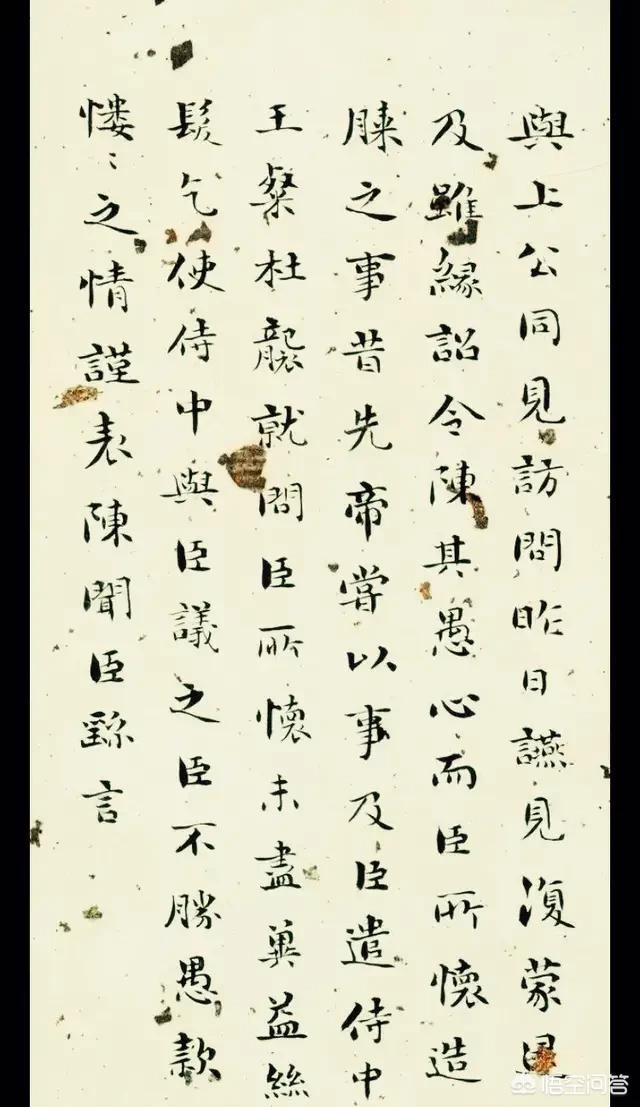 與上公同見訪問昨日讌見復蒙
及雖緣詔令陳其愚心而臣所懷造
膝之事昔先帝嘗以事及臣遣侍中
王粲杜襲就問臣所懷未盡冀益絲
髮乞使侍中與臣議之臣不勝愚款
慺〻之情謹表陳聞臣繇言
悟空问答